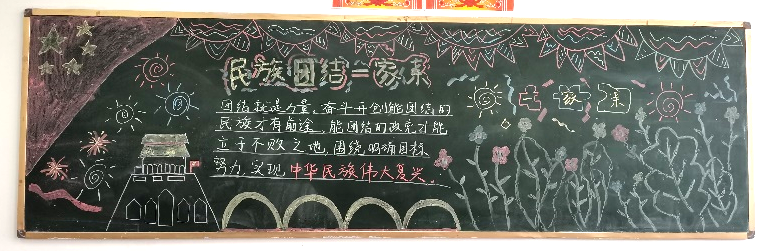 民族团结一家亲
团结就是力量,奋斗开创能团结的
民族才有前途,能团结的政党才能
立于不败之地,围绕明确目标
努力,实现中华民族伟大复兴。
一家亲